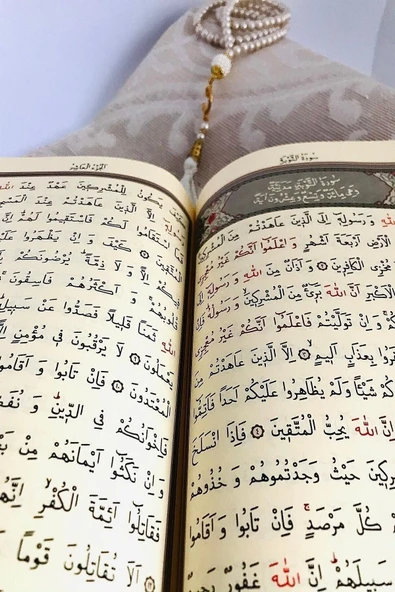 سُورَةُ التَّوْبَةِ
سُورَةُ التَّوْبَةِ مَدَنِيَّةٌ
وَهِيَ مِائَةٌ وَتِسْعٌ وَعِشْرُونَ آيَةً
اللهِ وَرَسُولِهِ اِلَى الَّذِينَ عَاهَدْتُمْ مِنَ الْمُشْرِكِينَ
الْاَرْضِ اَرْبَعَةَ اَشْهُرٍ وَاعْلَمُوا اَنَّكُمْ غَيْرُ
مُخْزِي الْكَافِرِينَ ۝ وَاَذَانٌ مِنَ اللهِ وَرَسُولِهِ
الْاَكْبَرِ اَنَّ اللهَ بَرِيءٌ مِنَ الْمُشْرِكِينَ وَرَسُولُهُ فَاِنْ
وَاِنْ تَوَلَّيْتُمْ فَاعْلَمُوا اَنَّكُمْ غَيْرُ
بِعَذَابٍ اَلِيمٍ ۝ اِلَّا الَّذِينَ عَاهَدْتُمْ مِنَ
شَيْئًا وَلَمْ يُظَاهِرُوا عَلَيْكُمْ اَحَدًا فَاَتِمُّوا
اِنَّ اللهَ يُحِبُّ الْمُتَّقِينَ ۝ فَاِذَا انْسَلَخَ
حَيْثُ وَجَدْتُمُوهُمْ وَخُذُوهُمْ
كُلَّ مَرْصَدٍ فَاِنْ تَابُوا وَاَقَامُوا
سَبِيلَهُمْ اِنَّ اللهَ غَفُورٌ رَحِيمٌ
اَلْجُزْءُ الْعَاشِرُ
يَكُونُ لِلْمُشْرِكِينَ عَهْدٌ عِنْدَ اللهِ
اِلَّا الَّذِينَ عَاهَدْتُمْ عِنْدَ
اسْتَقَامُوا لَكُمْ فَاسْتَقِيمُوا لَهُمْ اِنَّ
الْمُتَّقِينَ ۝ كَيْفَ وَاِنْ يَظْهَرُوا
فِيكُمْ اِلًّا وَلَا ذِمَّةً يُرْضُونَكُمْ
قُلُوبُهُمْ وَاَكْثَرُهُمْ فَاسِقُونَ ۝
اللهِ ثَمَنًا قَلِيلًا فَصَدُّوا عَنْ
يَعْمَلُونَ ۝ لَا يَرْقُبُونَ فِي مُؤْمِنٍ
الْمُعْتَدُونَ ۝ فَاِنْ تَابُوا وَاَقَامُوا
فَاِخْوَانُكُمْ فِي الدِّينِ
وَاِنْ نَكَثُوا اَيْمَانَهُمْ مِنْ
فَقَاتِلُوا اَئِمَّةَ الْكُفْرِ اِنَّهُمْ
۝ اَلَا تُقَاتِلُونَ قَوْمًا